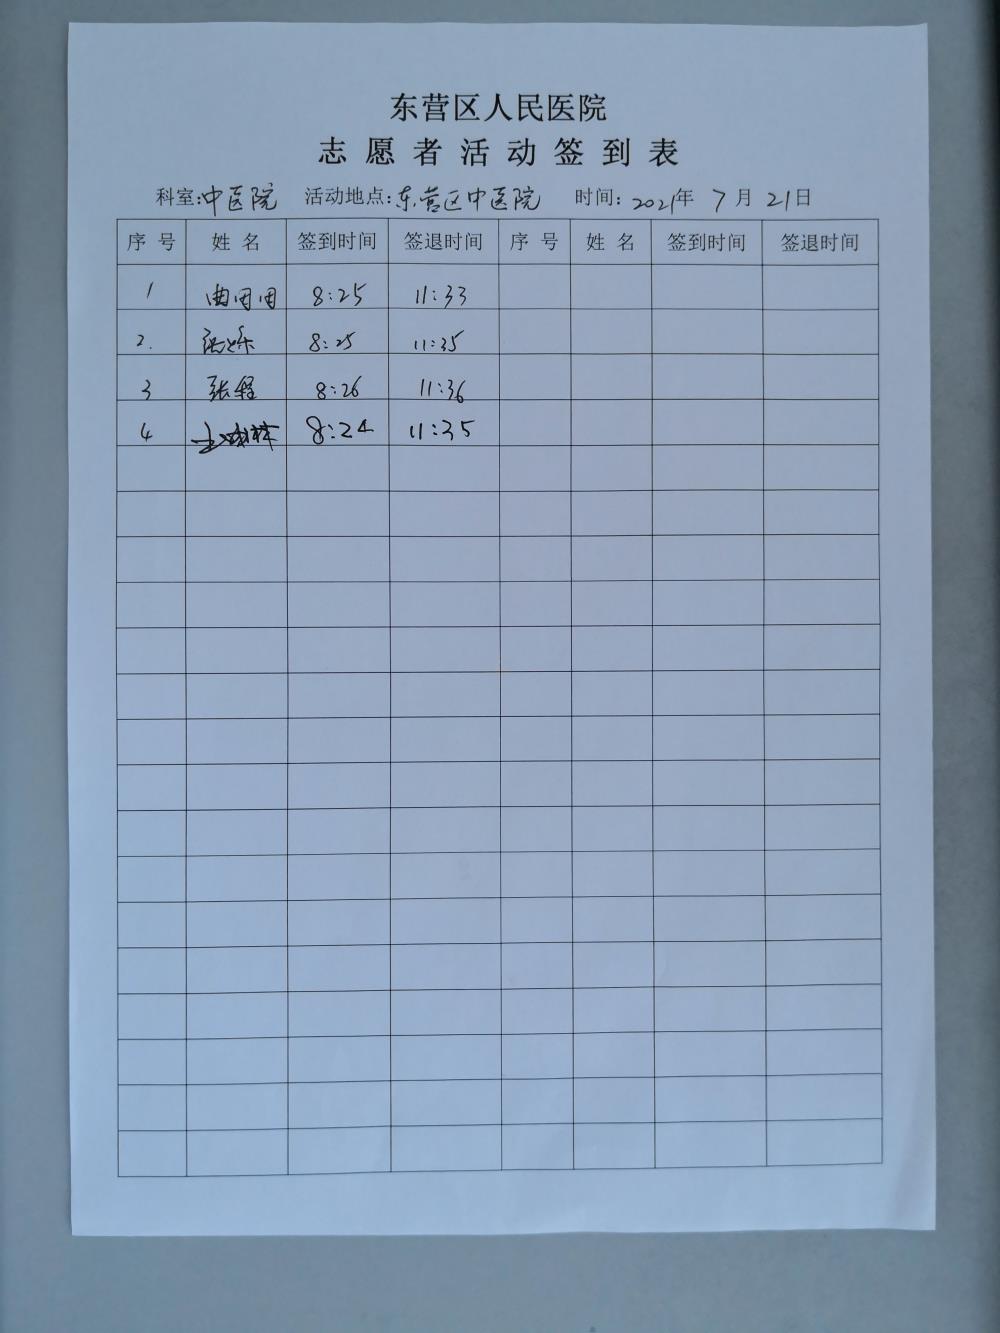 东营区人民医院
志愿者活动签到表
科室:中医院 活动地点:东营区中医院 时间:2021年7月21日
序号 姓名 签到时间 签退时间 序号 姓名 签到时间 签退时间
1 曲 8:25 11:33
2. 8:25 11:35
3 张程 8:26 11:36
4 8:24 11:35